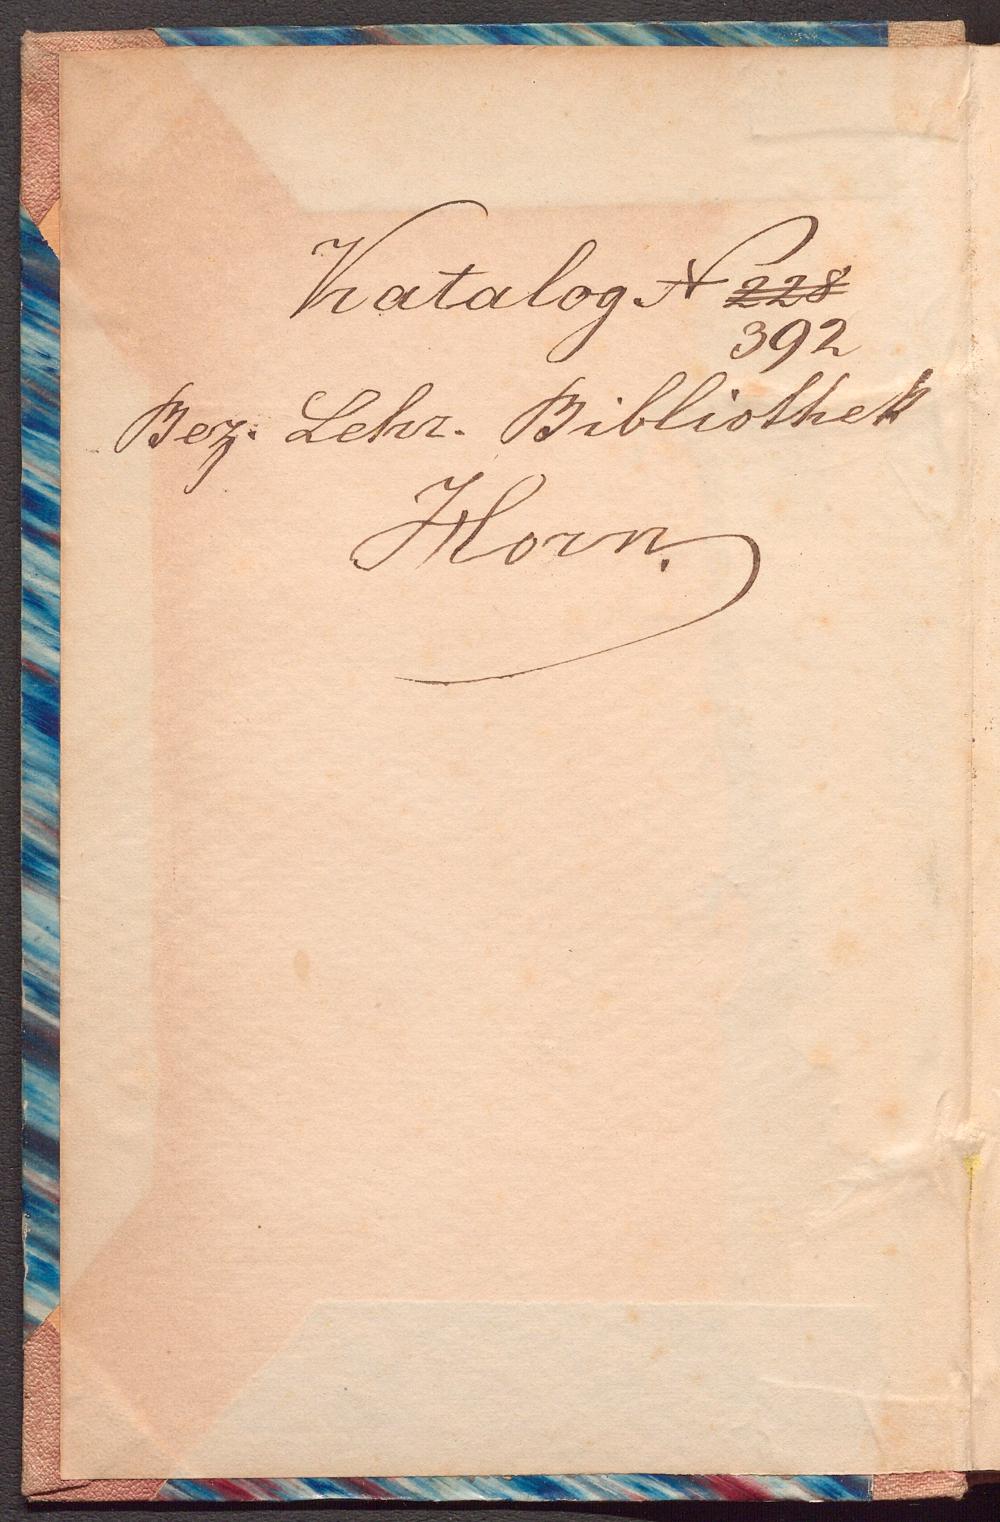 Katalog N 228
392
Bez. Lehr. Bibliothek
Horn.